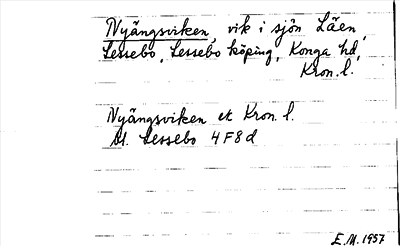 Nyängsviken, vik i sjön Läen,
Lessebo, Lessebo köping, Konga hd,
Kron. l.
Nyängsviken ek Kron. l.
Bl. Lessebo 4F8d
E.M. 1957